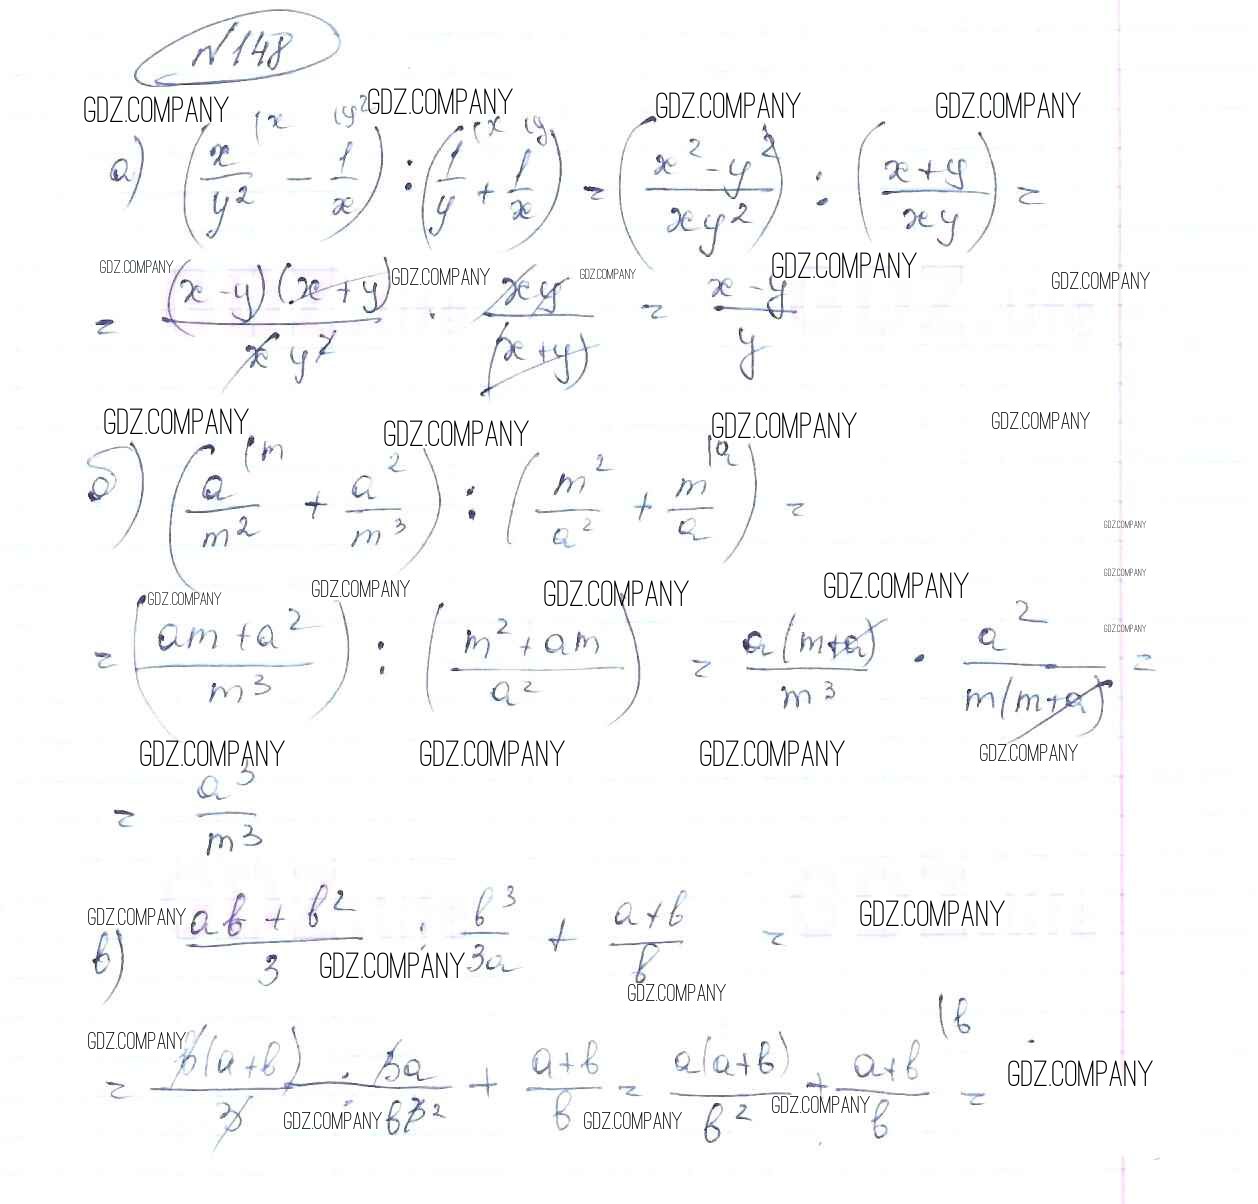 №148
GDZ.COMPANY GDZ.COMPANY GDZ.COMPANY GDZ.COMPANY
а) (x/y² |x − 1/x |y²) : (1/y |x + 1/x |y) = (x² − y²/xy²) : (x+y/xy) =
GDZ.COMPANY GDZ.COMPANY GDZ.COMPANY GDZ.COMPANY GDZ.COMPANY
= (x−y)(x+y)/xy² · xy/(x+y) = x−y/y
GDZ.COMPANY GDZ.COMPANY GDZ.COMPANY GDZ.COMPANY
б) (a/m² |m + a²/m³) : (m²/a² + m/a |a) =
GDZ.COMPANY
GDZ.COMPANY GDZ.COMPANY GDZ.COMPANY GDZ.COMPANY GDZ.COMPANY
= (am+a²/m³) : (m²+am/a²) = a(m+a)/m³ · a²/m(m+a) =
GDZ.COMPANY
GDZ.COMPANY GDZ.COMPANY GDZ.COMPANY GDZ.COMPANY
= a³/m³
GDZ.COMPANY GDZ.COMPANY
в) ab+b²/3 : b³/3a + a+b/b =
GDZ.COMPANY GDZ.COMPANY
GDZ.COMPANY GDZ.COMPANY
= b(a+b)/3 · 3a/b³² + a+b/b = a(a+b)/b² + a+b/b |b =
GDZ.COMPANY GDZ.COMPANY GDZ.COMPANY